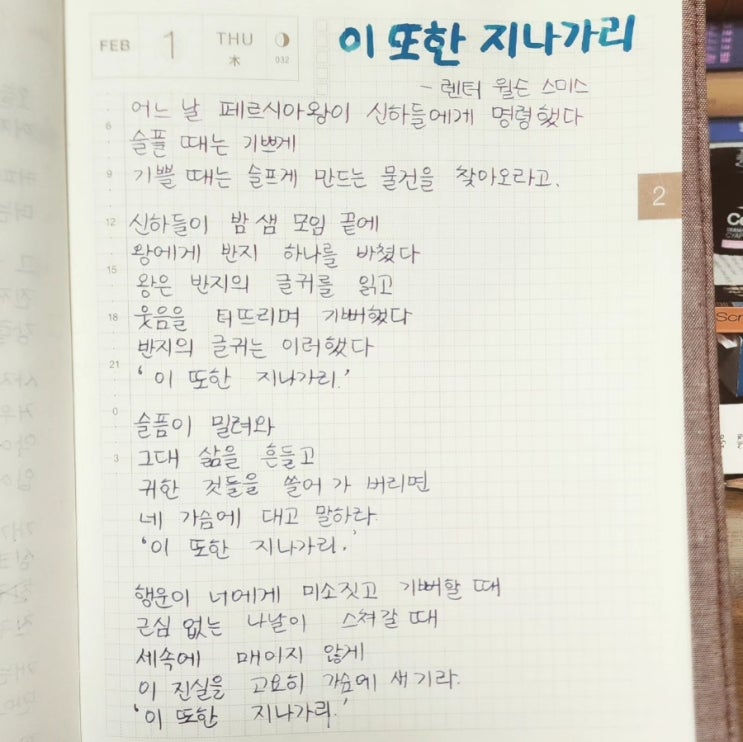 FEB 1 THU 木 032
이 또한 지나가리
- 렌터 윌슨 스미스
어느 날 페르시아왕이 신하들에게 명령했다
6
슬플 때는 기쁘게
9 기쁠 때는 슬프게 만드는 물건을 찾아오라고.
2
12 신하들이 밤 샘 모임 끝에
왕에게 반지 하나를 바쳤다
15 왕은 반지의 글귀를 읽고
18 웃음을 터뜨리며 기뻐했다
반지의 글귀는 이러했다
21
'이 또한 지나가리.'
0 슬픔이 밀려와
3 그대 삶을 흔들고
귀한 것들을 쓸어 가 버리면
네 가슴에 대고 말하라.
'이 또한 지나가리.'
행운이 너에게 미소짓고 기뻐할 때
근심 없는 나날이 스쳐갈 때
세속에 매이지 않게
이 진실을 고요히 가슴에 새기라.
'이 또한 지나가리.'